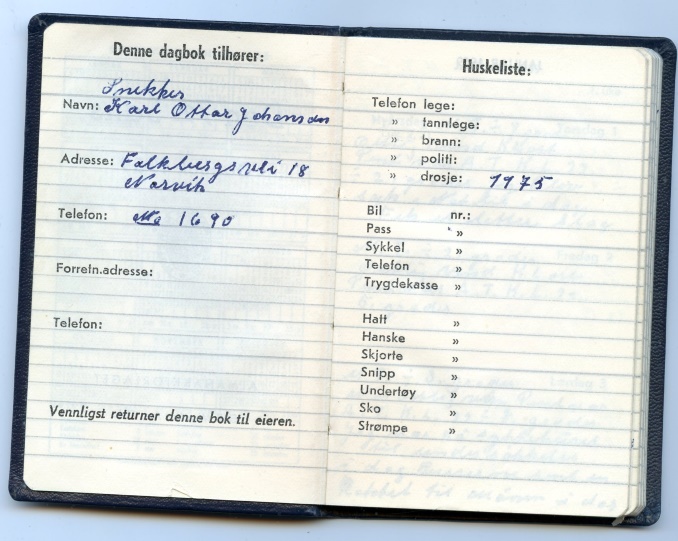 Denne dagbok tilhører:
Snekker
Navn: Karl Ottar Johansen
Adresse: Falkbergsvei 18
Narvik
Telefon: No 1690
Forretn.adresse:
Telefon:
Vennligst returner denne bok til eieren.
Huskeliste:
Telefon lege:
» tannlege:
» brann:
» politi:
» drosje: 1975
Bil nr.:
Pass »
Sykkel »
Telefon »
Trygdekasse »
Hatt »
Hanske »
Skjorte »
Snipp »
Undertøy »
Sko »
Strømpe »